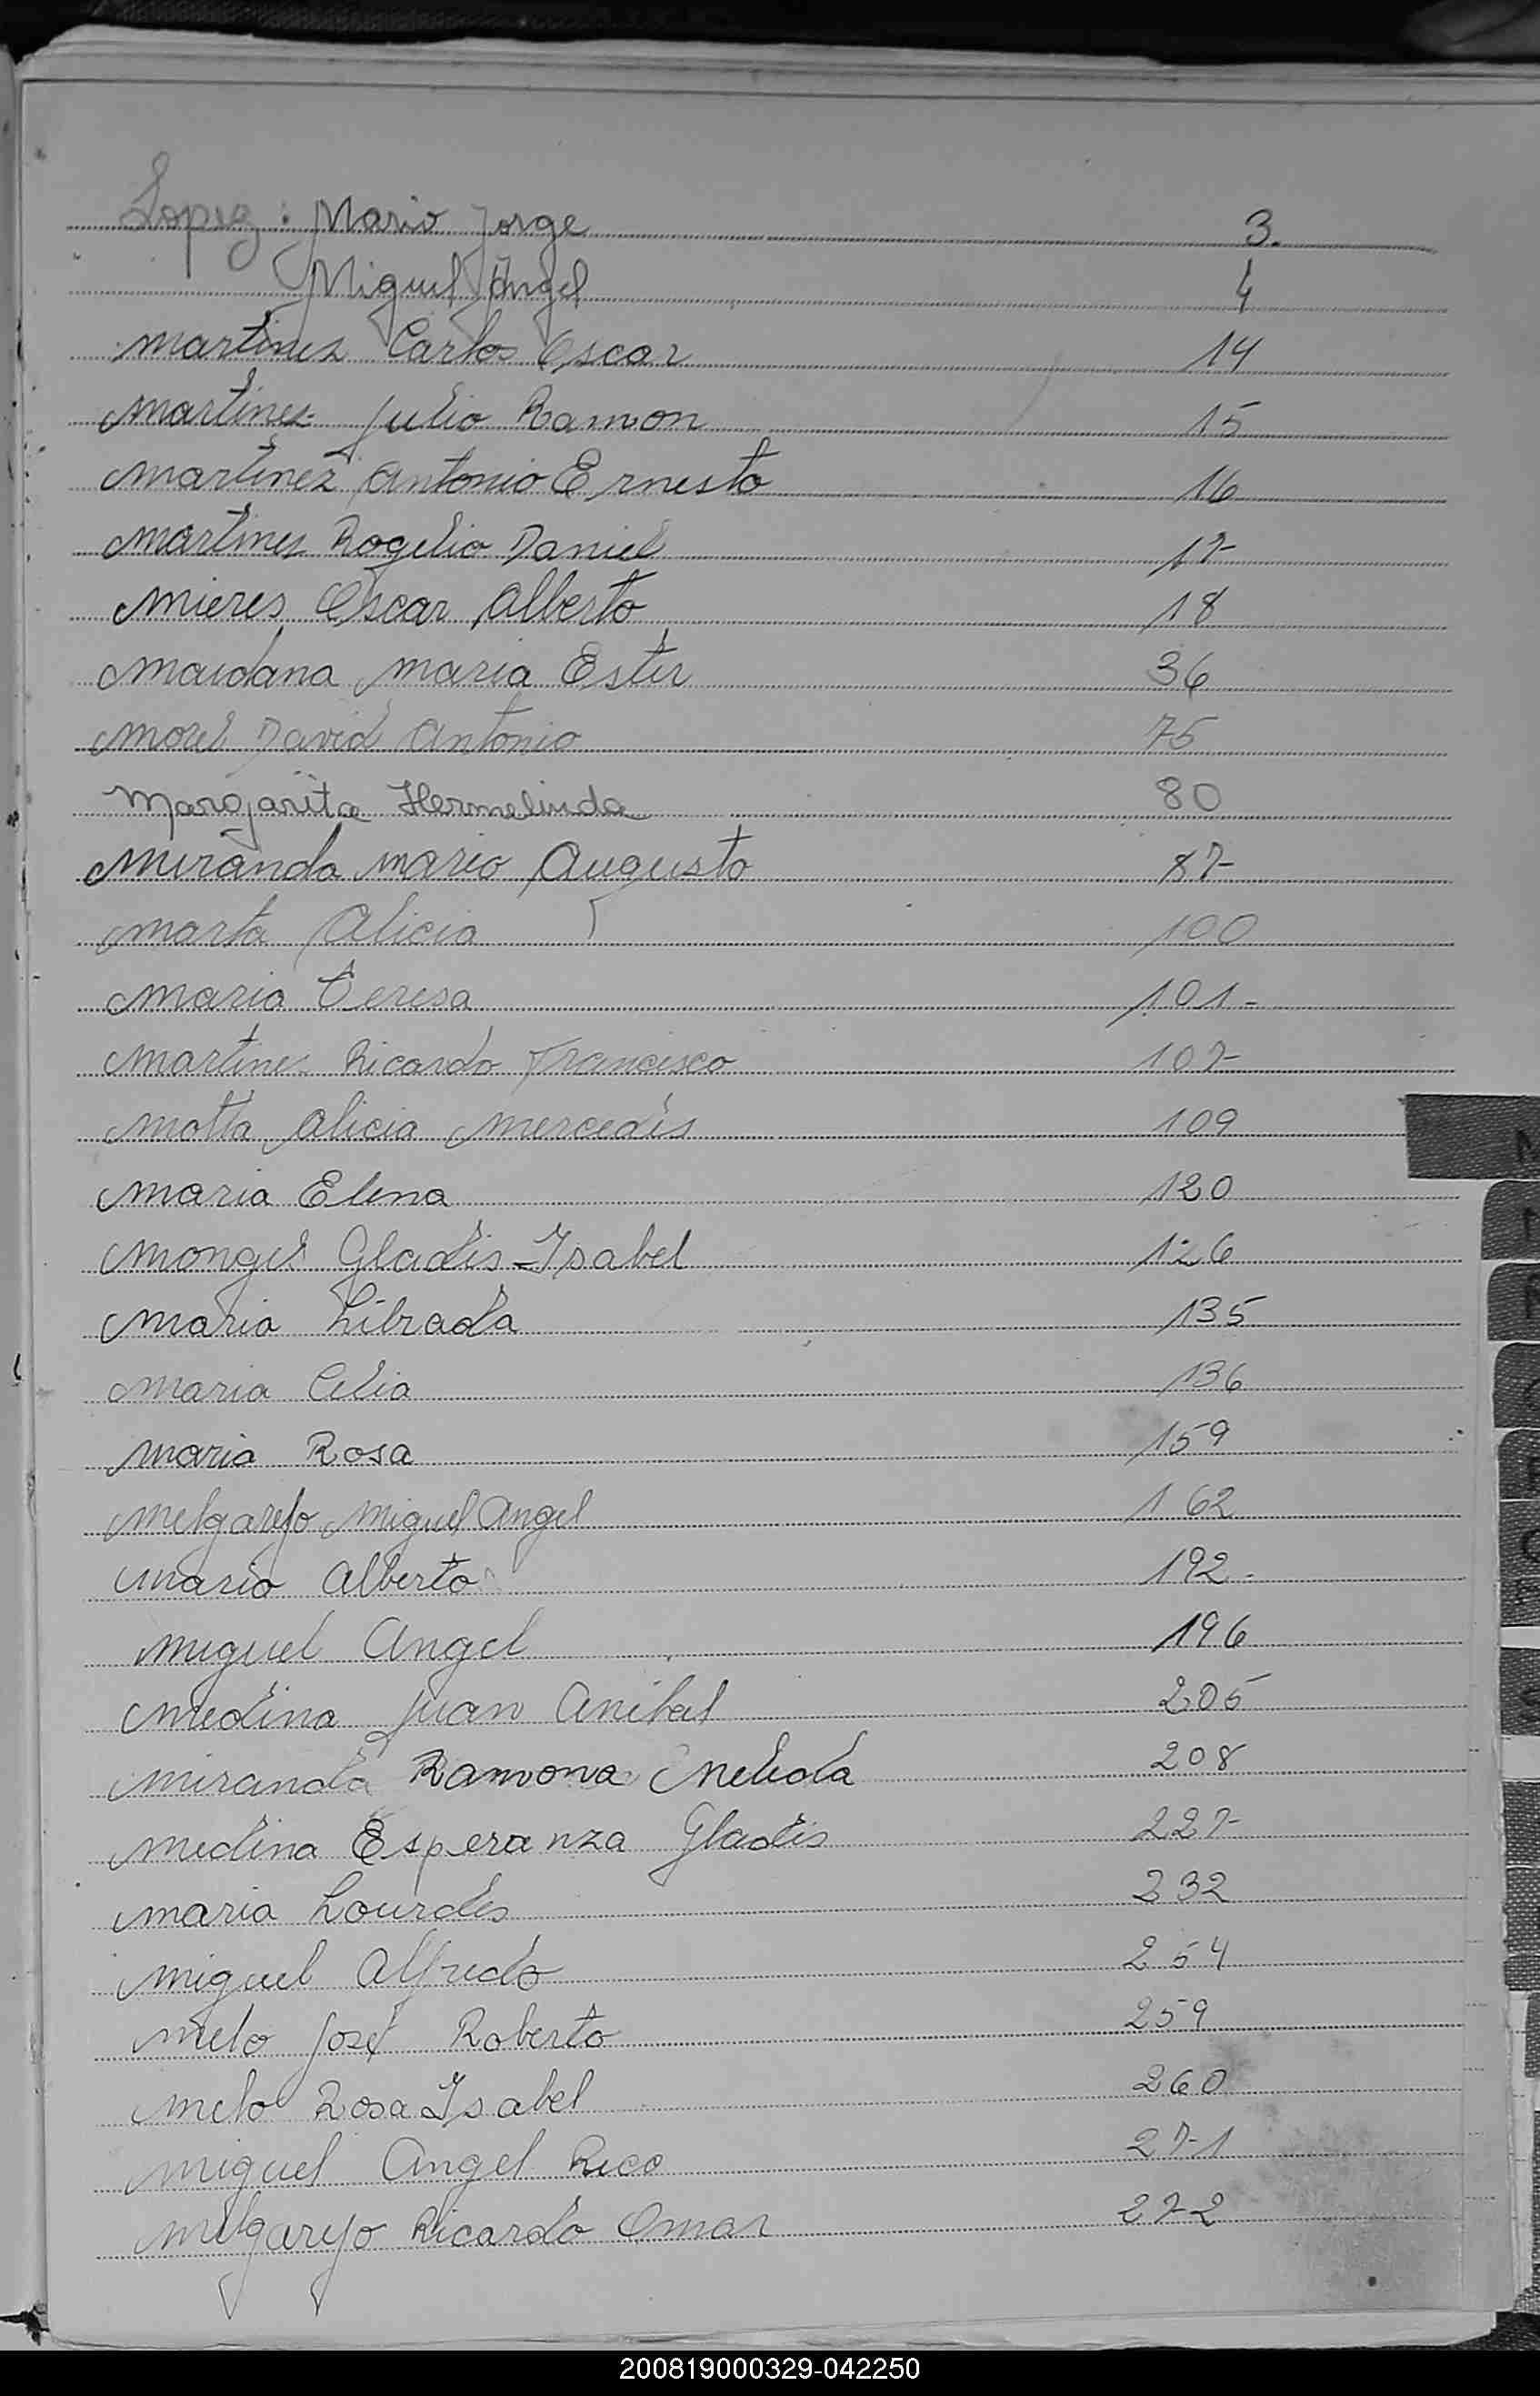 Lopez: Mario Jorge 3.
Miguel Angel 4
Martinez Carlos Oscar 14
Martinez Julio Ramon 15
Martinez Antonio Ernesto 16
Martinez Rogelio Daniel 17
Mieres Oscar Alberto 18
Maidana Maria Ester 36
Morel David Antonio 75
Margarita Hermelinda 80
Miranda Mario Augusto 87
Marta Alicia 100
Maria Teresa 101-
Martinez Ricardo Francisco 107
Motta Alicia Mercedes 109
Maria Elena 120
Mongel Gladis Isabel 126
Maria Librada 135
Maria Celia 136
Maria Rosa 159
Melgarejo Miguel Angel 162
Mario Alberto 192-
Miguel Angel 196
Medina Juan Anibal 205
Miranda Ramona Nelida 208
Medina Esperanza Gladis 227
Maria Lourdes 232
Miguel Alfredo 254
Melo José Roberto 259
Melo Rosa Isabel 260
Miguel Angel Rico 271
Melgarejo Ricardo Omar 272
M
200819000329-042250